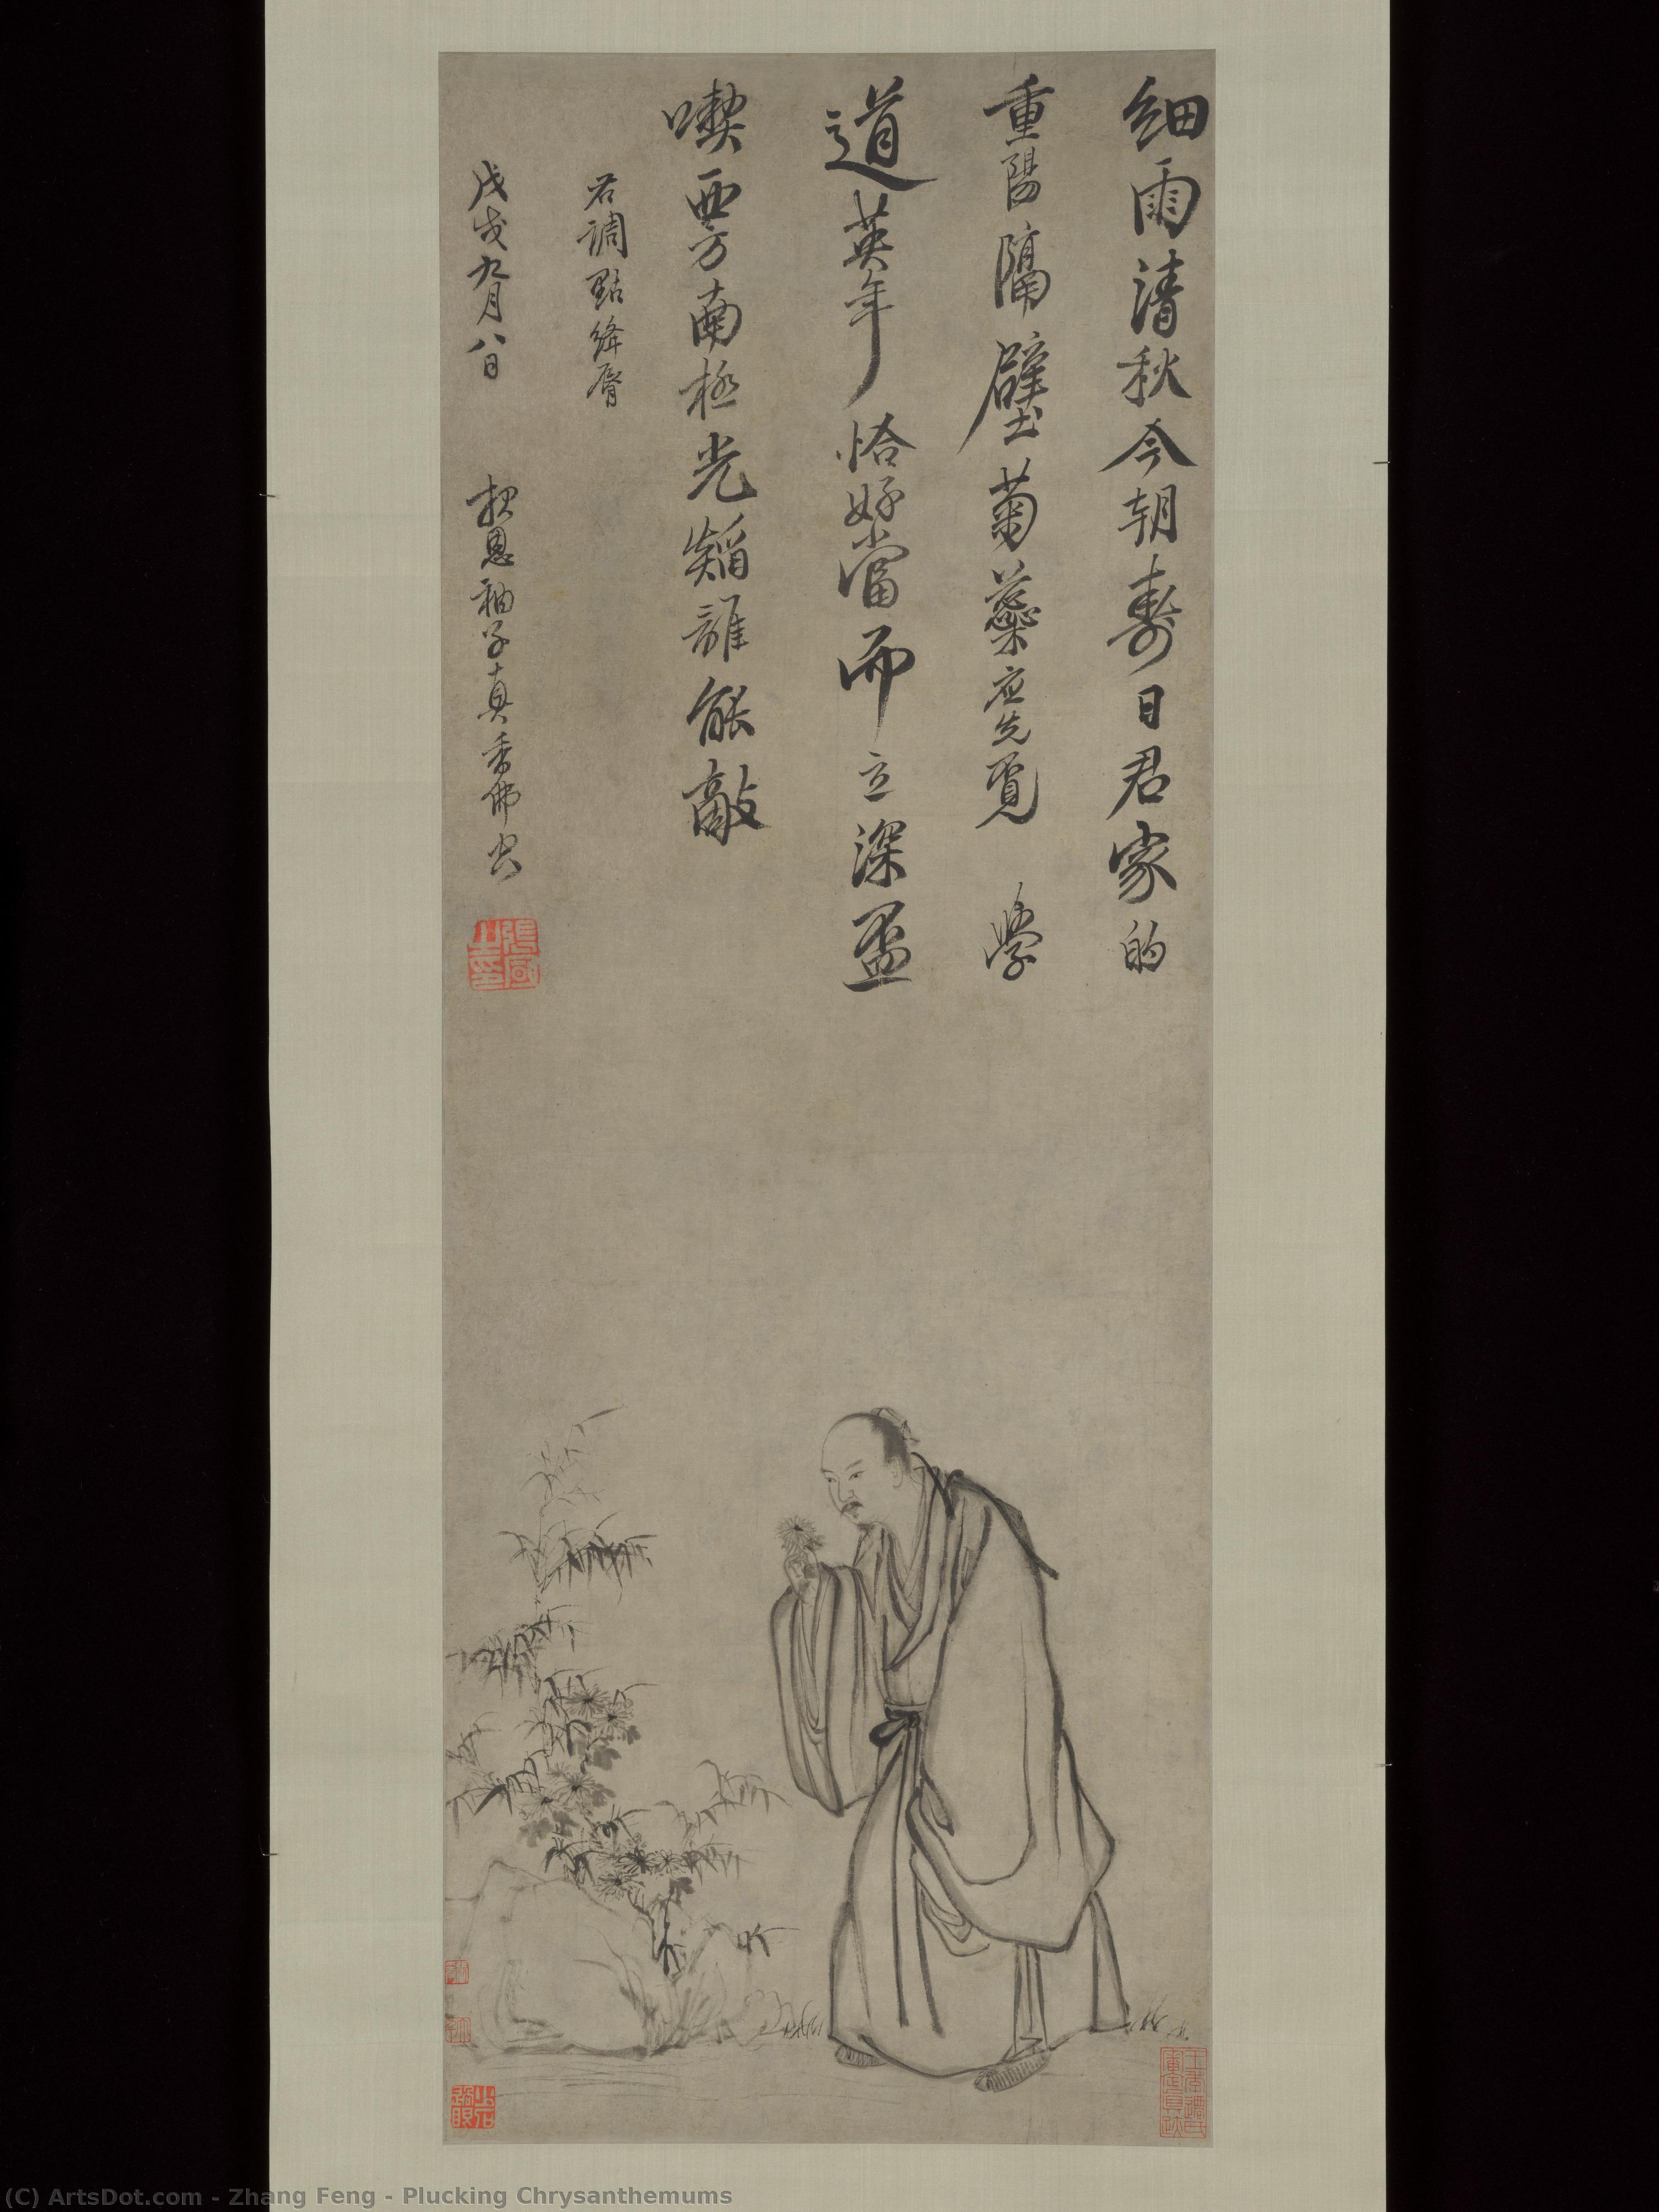 细雨清秋今朝壽日君家的
重陽隔壁菊蘂应先覓 學
道英年恰好當而立深盃
喫西方南極光爓誰能敵
右調點絳唇
戊戌九月八日 報恩衲子真香佛空
(C) ArtsDot.com - Zhang Feng - Plucking Chrysanthemums